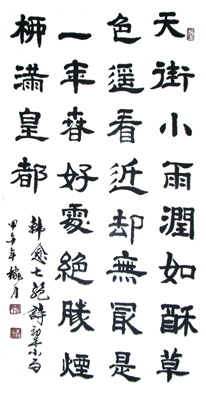 天街小雨潤如酥草
色遥看近却無冣是
一年春好處絕勝煙
柳滿皇都
韓愈七絕詩初春小雨
甲午年月